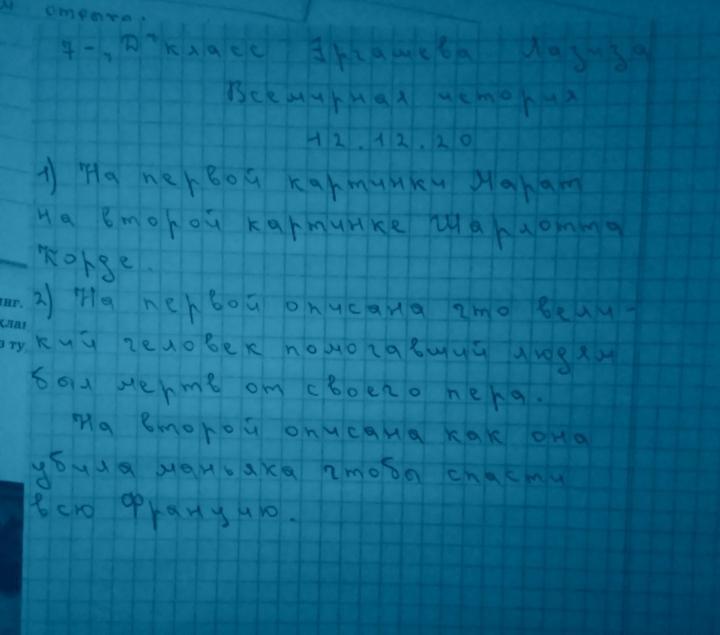 отряда.
7-„D" класс Эргашева Лазиза
Всемирная история
12.12.20
1) На первой картинки Марат
на второй картинке Шарлотта
Корде.
2) На первой описана что вели-
кий человек помогавший людям
был мертв от своего пера.
На второй описана как она
убила маньяка чтобы спасти
всю Францию.